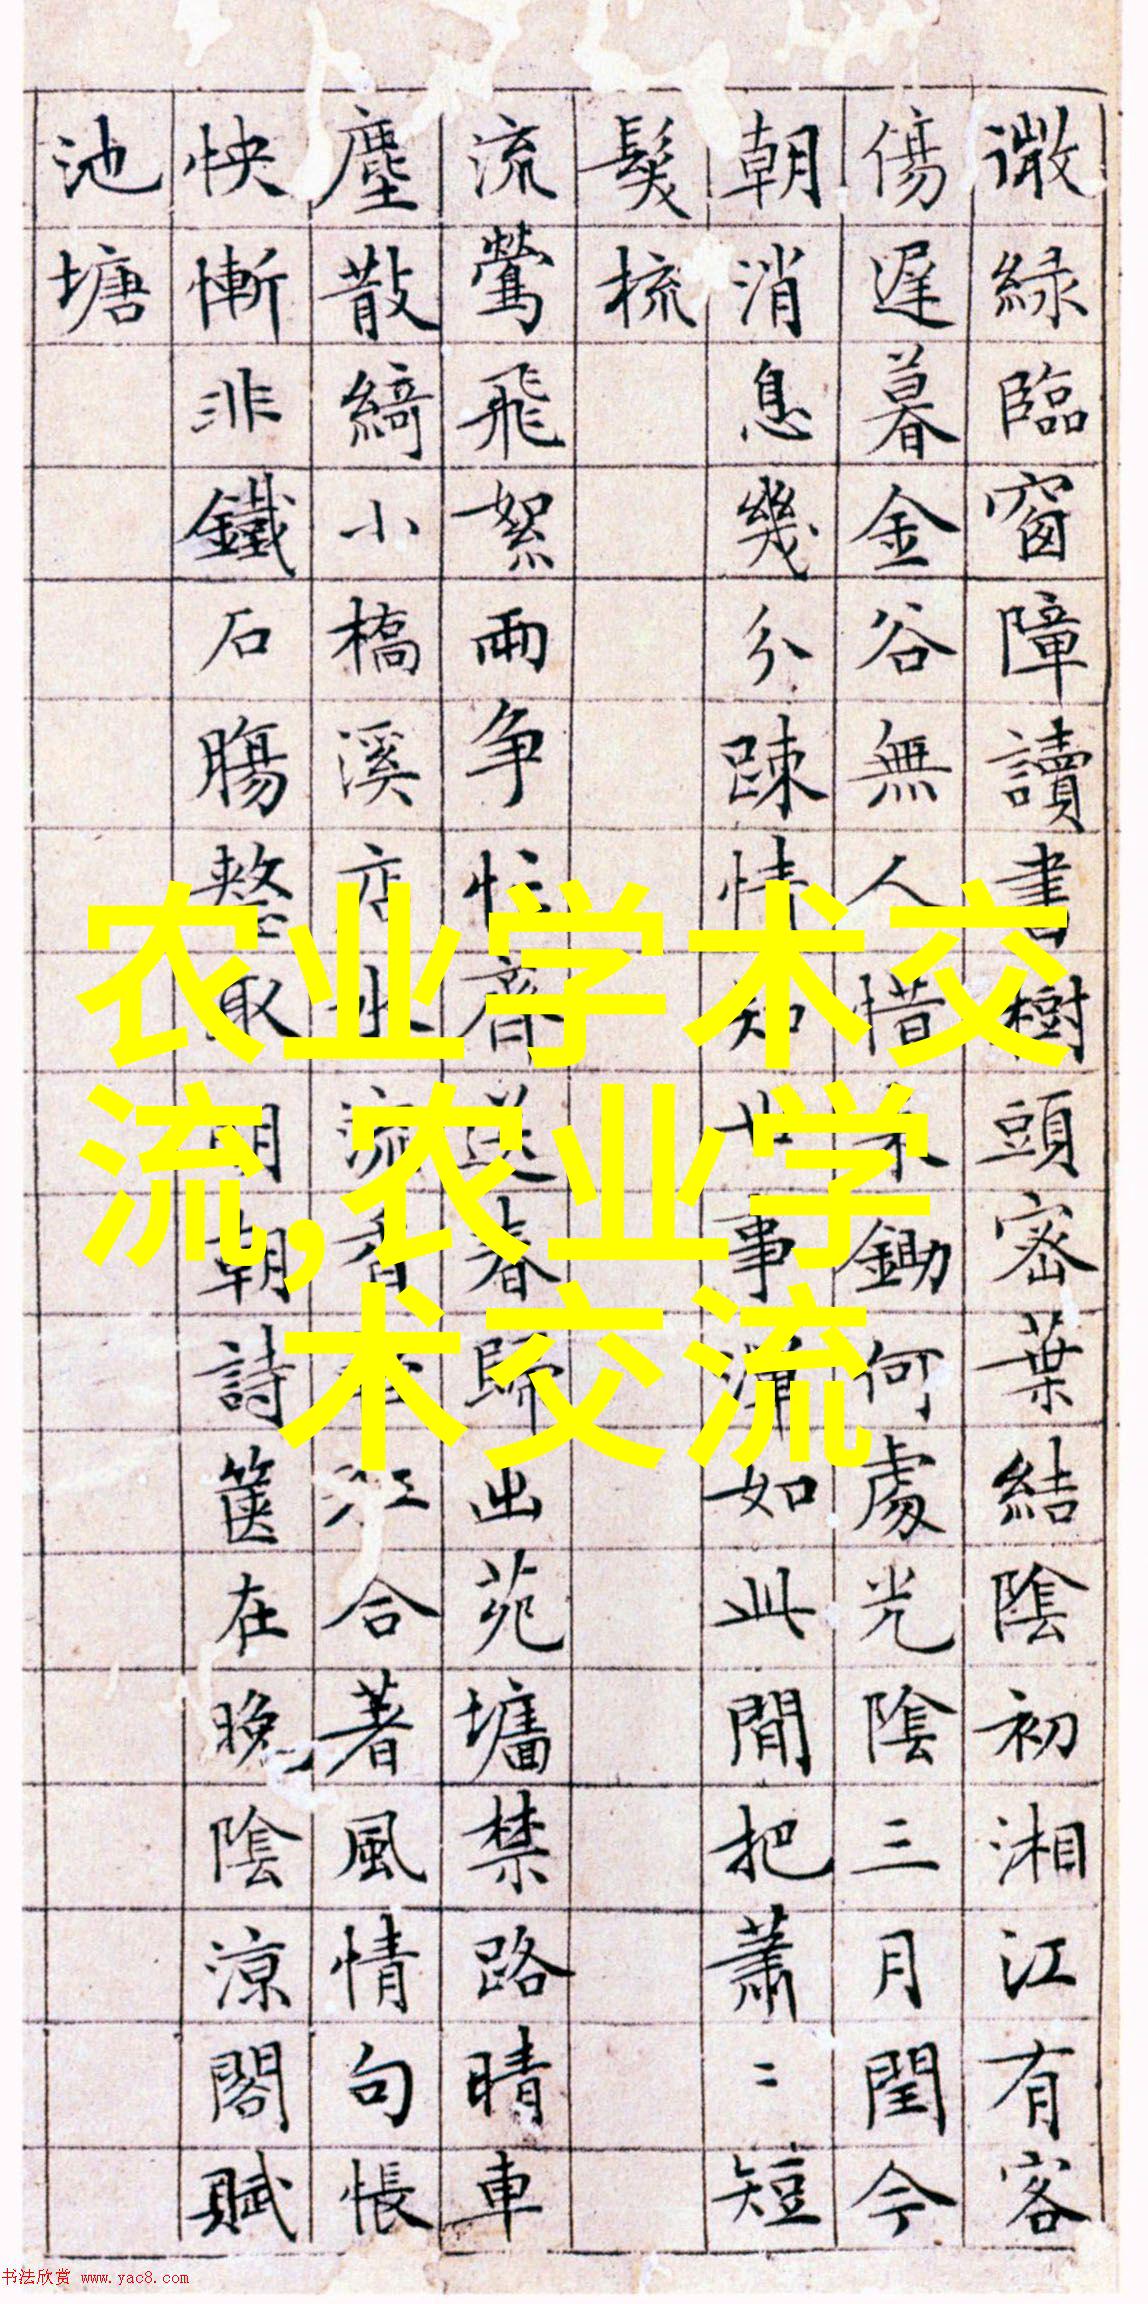 微綠臨窗障讀書樹頭密葉結陰初湘江有客
傷遲暮金谷無人惜未鋤何處光陰三月閏今
朝消息幾分踈情知世事渾如此間把蕭〻短
髮梳
流鶯飛絮兩争忙齊送春歸出苑墻禁路晴車
塵散綺小橋溪店水流香江合著風情句悵
怏慚非鐵石膓取明朝詩篋在晚陰涼閣賦
池塘
农业学术交
流,农业学
术交流
书法欣赏 www.yac8.com